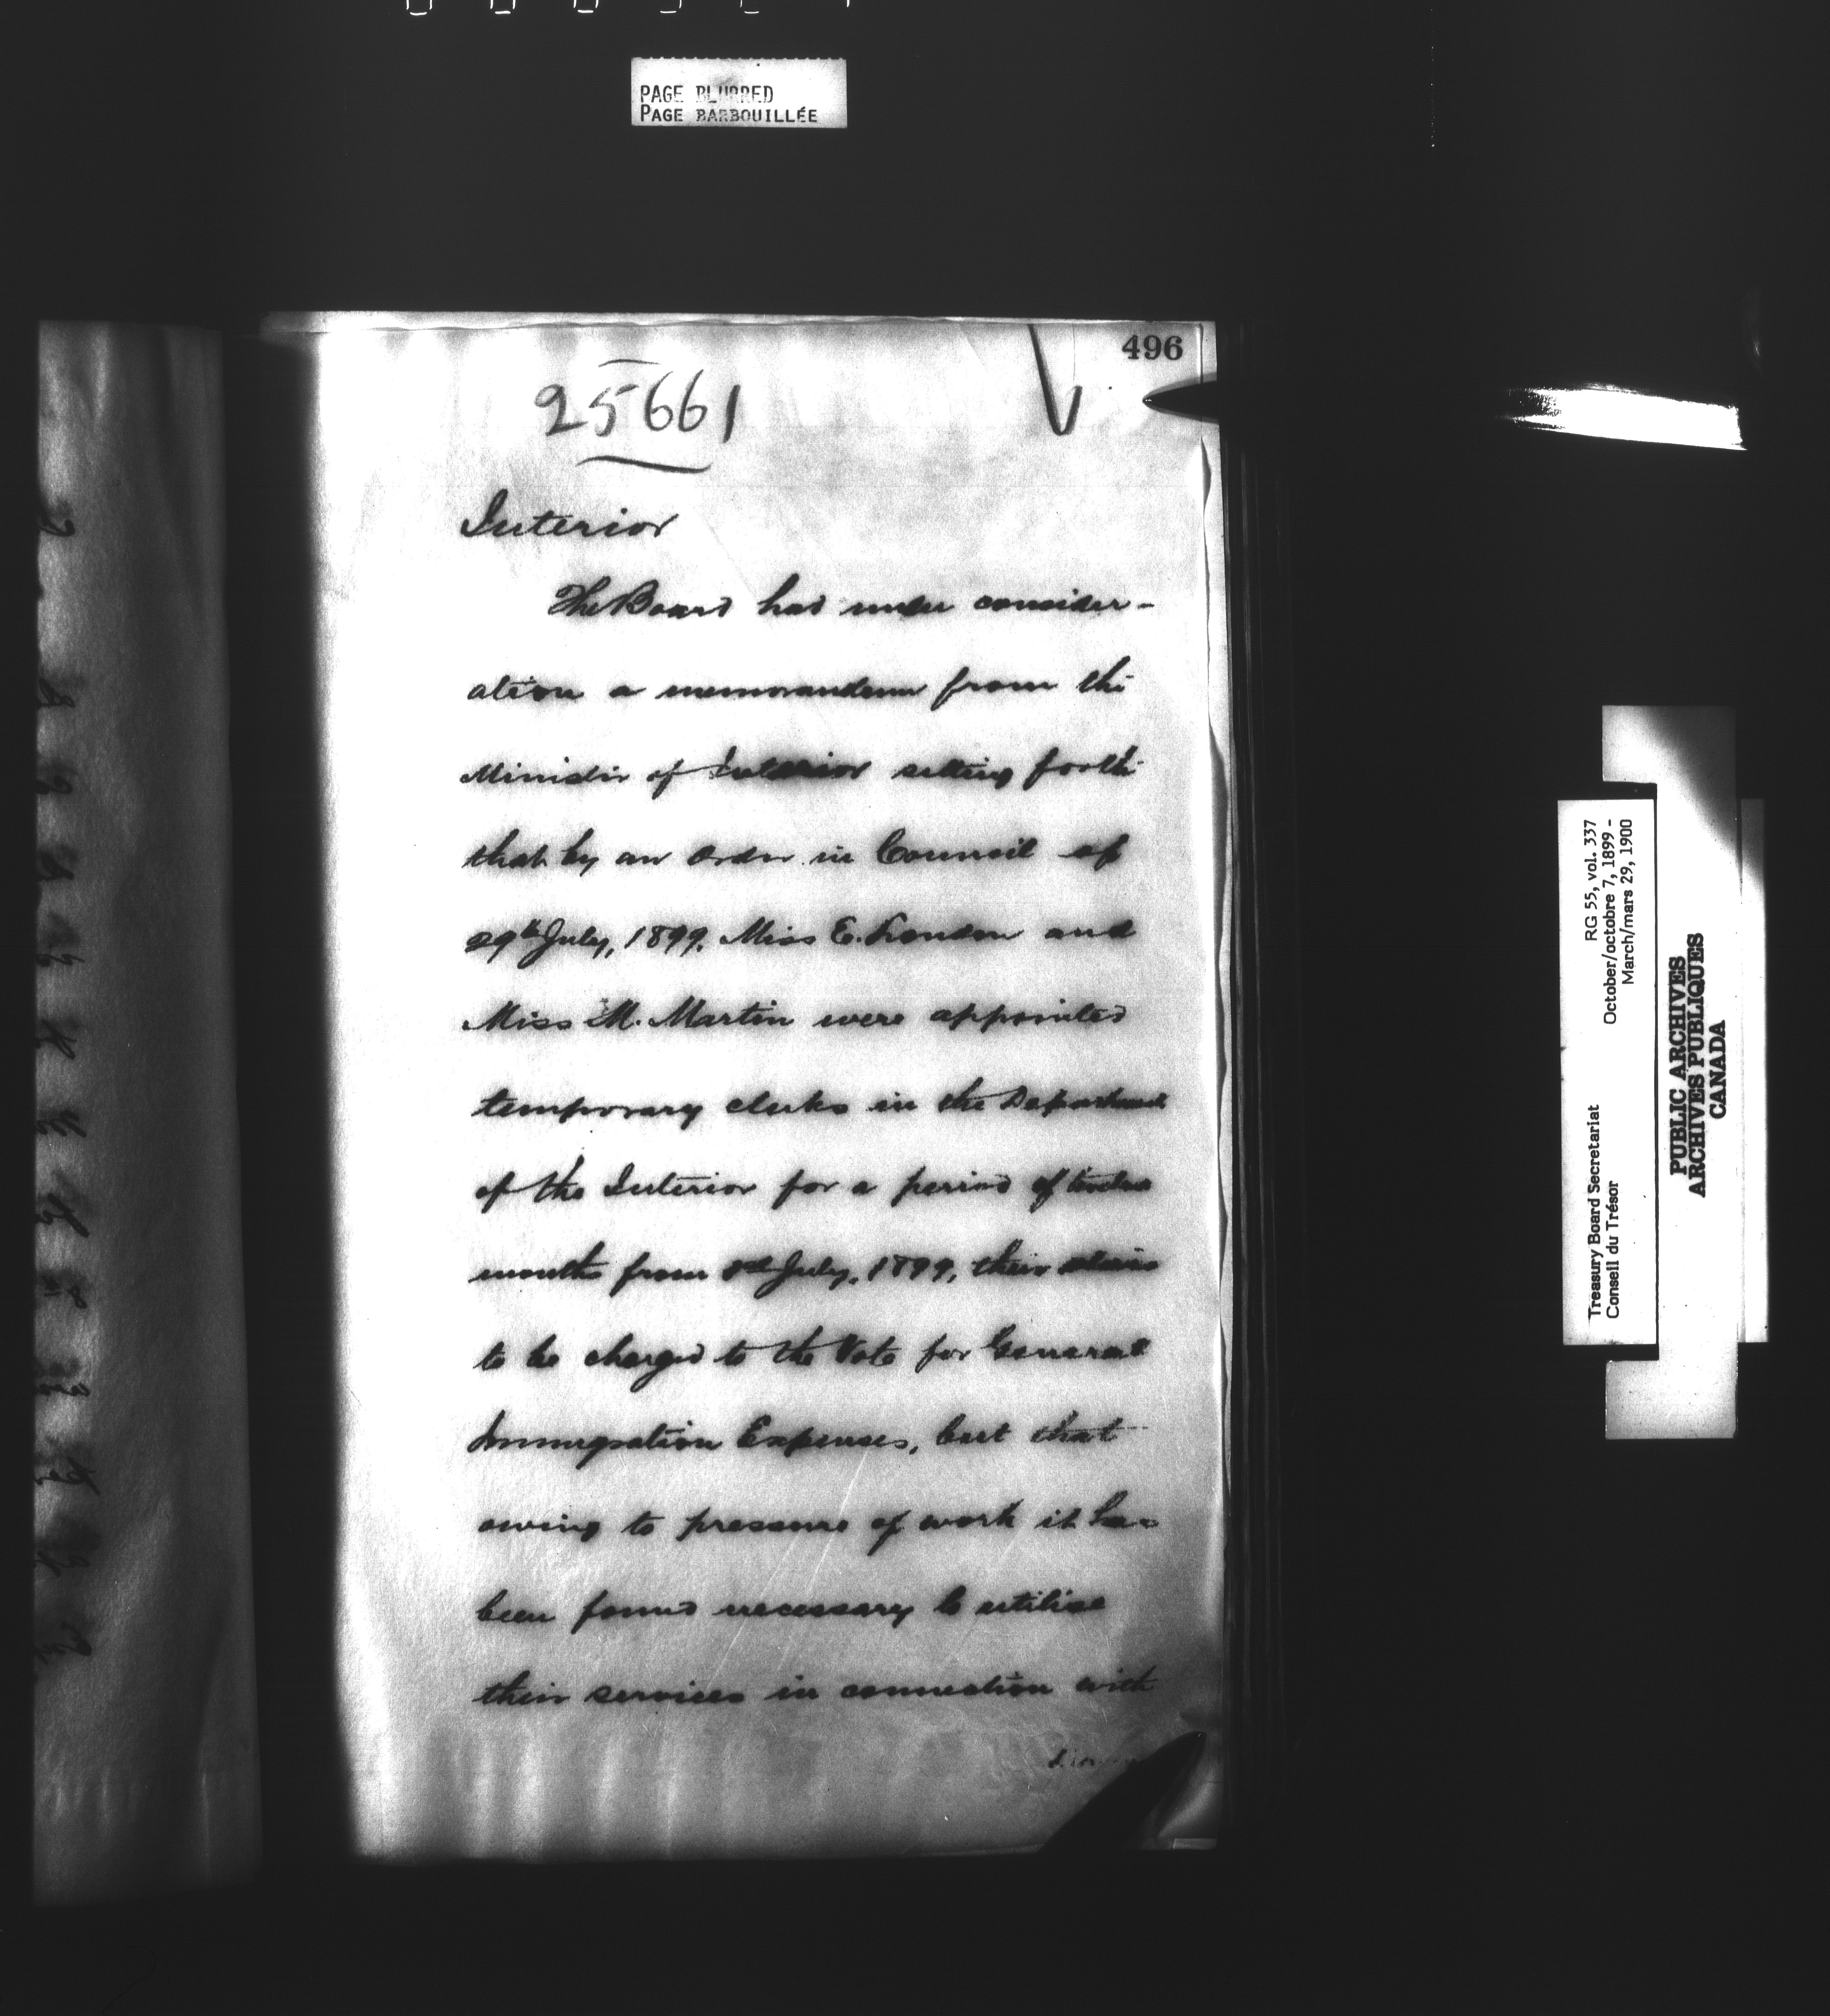 PAGE BLURRED
PAGE BARBOUILLÉE
496
25661
Interior
The Board had under consider-
ation a memorandum from the
Minister of Interior setting forth
that by an Order in Council of
29th July, 1899, Miss E. and
Miss M. Martin were appointed
temporary clerks in the Department
of the Interior for a period of twelve
months from 1st July, 1899, their
to be charged to the Vote for General
Immigration Expenses, but that
owing to pressure of work it has
been found necessary to utilise
their services in connection with
Treasury Board Secretariat RG 55, vol. 337
Conseil du Trésor October/octobre 7, 1899 -
March/mars 29, 1900
PUBLIC ARCHIVES
ARCHIVES PUBLIQUES
CANADA